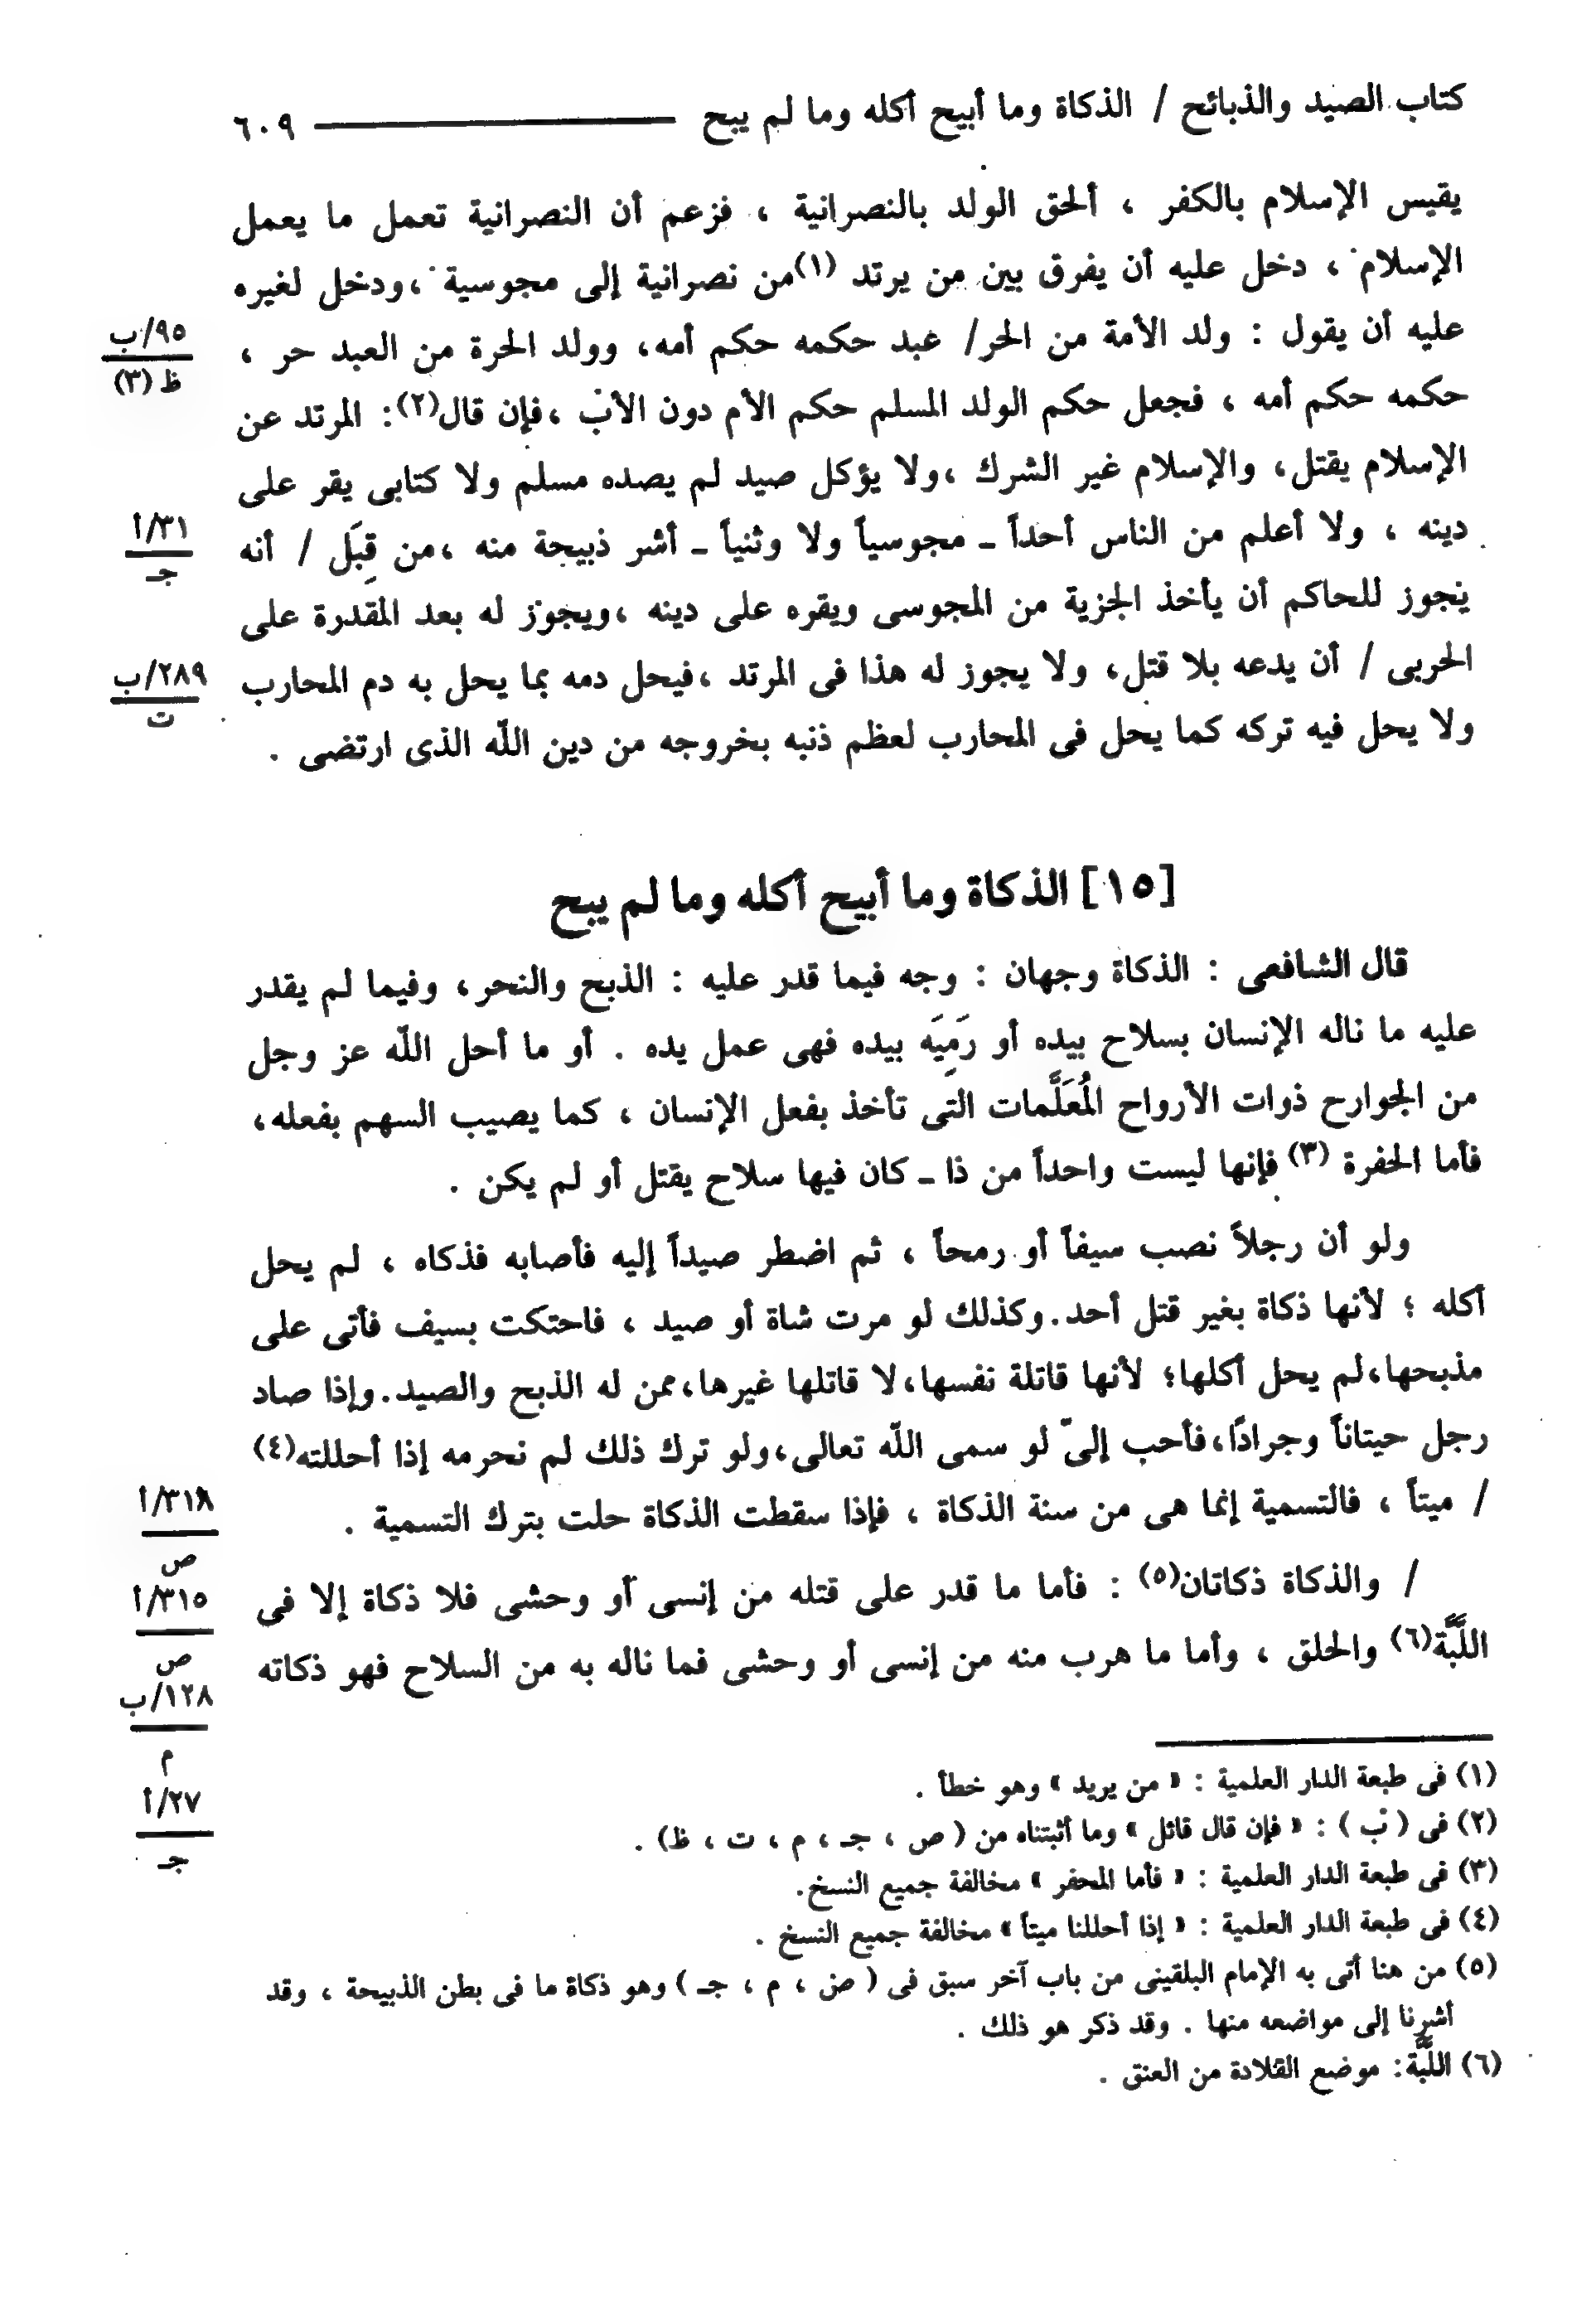 كتاب الصيد والذبائح / الذكاة وما أبيح أكله وما لم يبح ٦٠٩
يقيس الإسلام بالكفر ، ألحق الولد بالنصرانية ، فزعم أن النصرانية تعمل ما يعمل
الإسلام ، دخل عليه أن يفرق بين من يرتد (١)من نصرانية إلى مجوسية ،ودخل لغيره
عليه أن يقول : ولد الأمة من الحر/ عبد حكمه حكم أمه، وولد الحرة من العبد حر ،
٩٥/ب
ظ (٣)
حكمه حكم أمه ، فجعل حكم الولد المسلم حكم الأم دون الأب ،فإن قال(٢): المرتد عن
الإسلام يقتل، والإسلام غير الشرك ،ولا يؤكل صيد لم يصده مسلم ولا كتابى يقر على
دينه ، ولا أعلم من الناس أحداً ـ مجوسياً ولا وثنياً ـ أشر ذبيحة منه ،من قِبَل / أنه
٣١/أ
جـ
يجوز للحاكم أن يأخذ الجزية من المجوسى ويقره على دينه ،ويجوز له بعد المقدرة على
الحربى / أن يدعه بلا قتل، ولا يجوز له هذا فى المرتد ،فيحل دمه بما يحل به دم المحارب
٢٨٩/ب
ت
ولا يحل فيه تركه كما يحل فى المحارب لعظم ذنبه بخروجه من دين اللّه الذى ارتضى .
[١٥] الذكاة وما أبيح أكله وما لم يبح
قال الشافعى : الذكاة وجهان : وجه فيما قدر عليه : الذبح والنحر، وفيما لم يقدر
عليه ما ناله الإنسان بسلاح بيده أو رَمِيَه بيده فهى عمل يده . أو ما أحل اللّه عز وجل
من الجوارح ذوات الأرواح المُعَلَّمات التى تأخذ بفعل الإنسان ، كما يصيب السهم بفعله،
فأما الحفرة (٣) فإنها ليست واحداً من ذا ـ كان فيها سلاح يقتل أو لم يكن .
ولو أن رجلاً نصب سيفاً أو رمحاً ، ثم اضطر صيداً إليه فأصابه فذكاه ، لم يحل
أكله ؛ لأنها ذكاة بغير قتل أحد.وكذلك لو مرت شاة أو صيد ، فاحتكت بسيف فأتى على
مذبحها،لم يحل أكلها؛ لأنها قاتلة نفسها،لا قاتلها غيرها،ممن له الذبح والصيد.وإذا صاد
رجل حيتاناً وجرادًا،فأحب إلىّ لو سمى اللّه تعالى،ولو ترك ذلك لم نحرمه إذا أحللته(٤)
/ ميتاً ، فالتسمية إنما هى من سنة الذكاة ، فإذا سقطت الذكاة حلت بترك التسمية .
٣١٨/أ
ص
/ والذكاة ذكاتان(٥) : فأما ما قدر على قتله من إنسى أو وحشى فلا ذكاة إلا فى
٣١٥/أ
ص
اللَّبَّة(٦) والحلق ، وأما ما هرب منه من إنسى أو وحشى فما ناله به من السلاح فهو ذكاته
١٢٨/ب
م
٢٧/أ
جـ
(١) فى طبعة الدار العلمية : « من يريد » وهو خطأ .
(٢) فى ( ب ) : « فإن قال قائل » وما أثبتناه من ( ص ، جـ ، م ، ت ، ظ) .
(٣) فى طبعة الدار العلمية : « فأما المحفر » مخالفة جميع النسخ.
(٤) فى طبعة الدار العلمية : « إذا أحللنا ميتاً » مخالفة جميع النسخ .
(٥) من هنا أتى به الإمام البلقينى من باب آخر سبق فى ( ص ، م ، جـ ) وهو ذكاة ما فى بطن الذبيحة ، وقد
أشرنا إلى مواضعه منها . وقد ذكر هو ذلك .
(٦) اللَّبَّة: موضع القلادة من العنق .